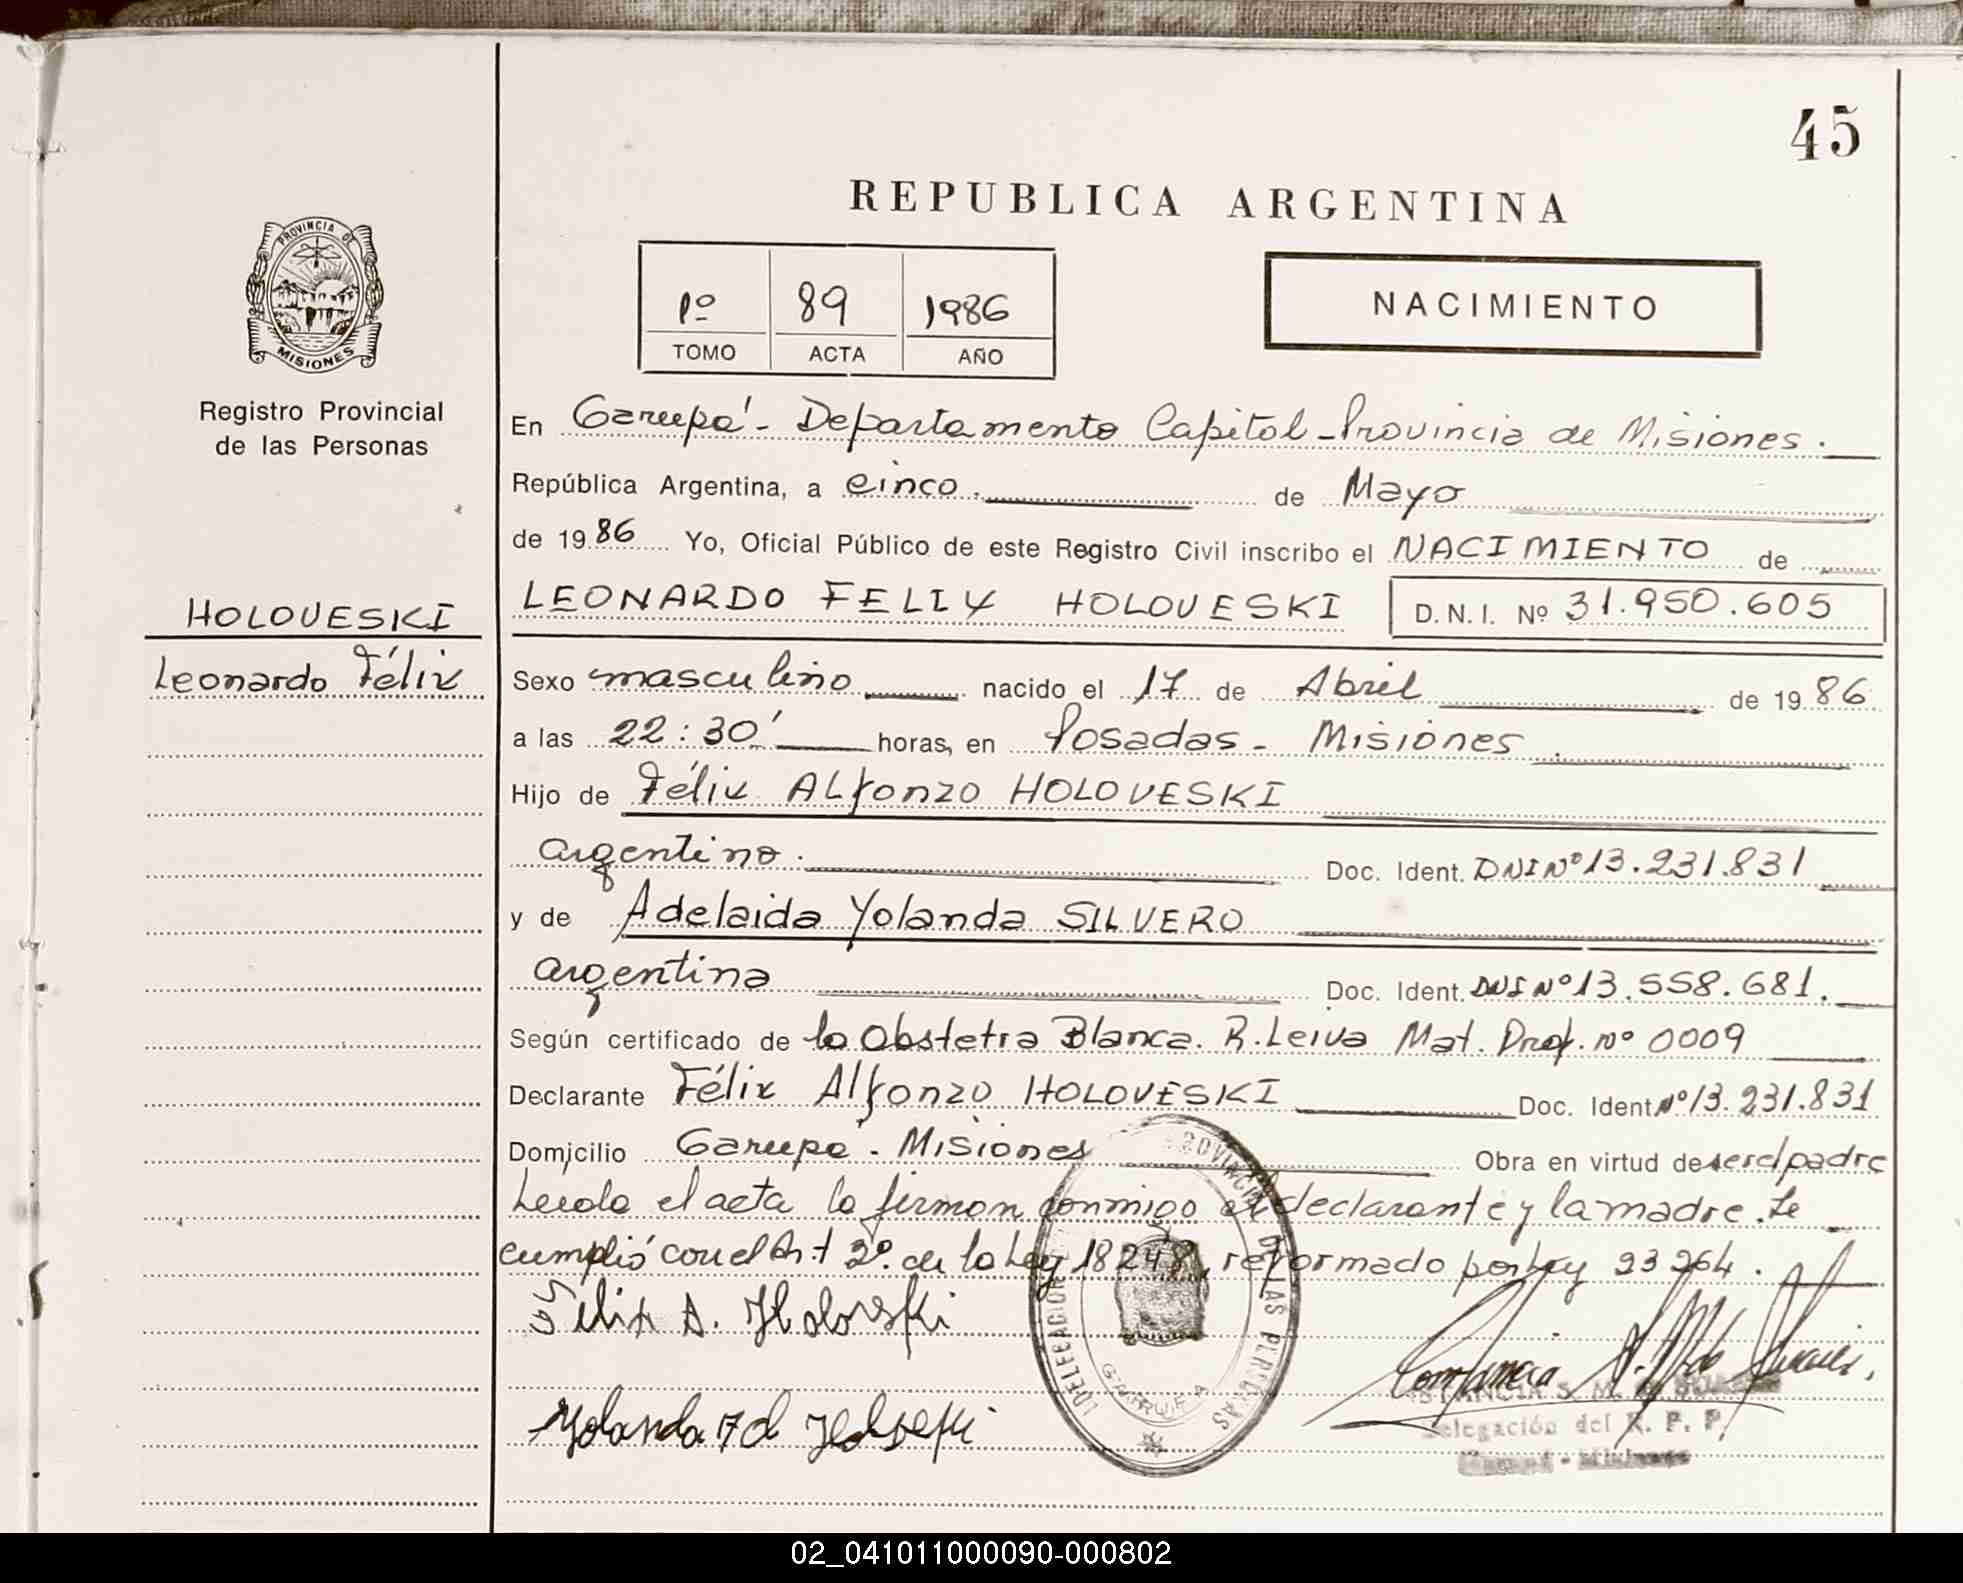 45
REPUBLICA ARGENTINA
PROVINCIA DE
MISIONES
1º 89 1986
TOMO ACTA AÑO
NACIMIENTO
Registro Provincial
de las Personas
En Garupá - Departamento Capital - Provincia de Misiones.
República Argentina, a cinco. de Mayo
de 1986 Yo, Oficial Público de este Registro Civil inscribo el NACIMIENTO de
LEONARDO FELIX HOLOVESKI D.N.I. Nº 31.950.605
HOLOVESKI
Leonardo Félix
Sexo masculino nacido el 17 de Abril de 1986
a las 22:30' horas, en Posadas - Misiones.
Hijo de Félix Alfonzo HOLOVESKI
argentino. Doc. Ident. DNI Nº 13.231.831
y de Adelaida Yolanda SILVERO
argentina Doc. Ident. DNI Nº 13.558.681.
Según certificado de la Obstetra Blanca. R. Leiva Mat. Prof. nº 0009
Declarante Félix Alfonzo HOLOVESKI Doc. Ident Nº 13.231.831
Domicilio Garupá - Misiones Obra en virtud de ser el padre
Leída el acta la firman conmigo el declarante y la madre. Se
cumplió con el Art 2º. de la Ley 18248, reformado por Ley 23264.
Felix A. Holoveski
Yolanda
Constancia
Delegación del R. P. P.
02_041011000090-000802